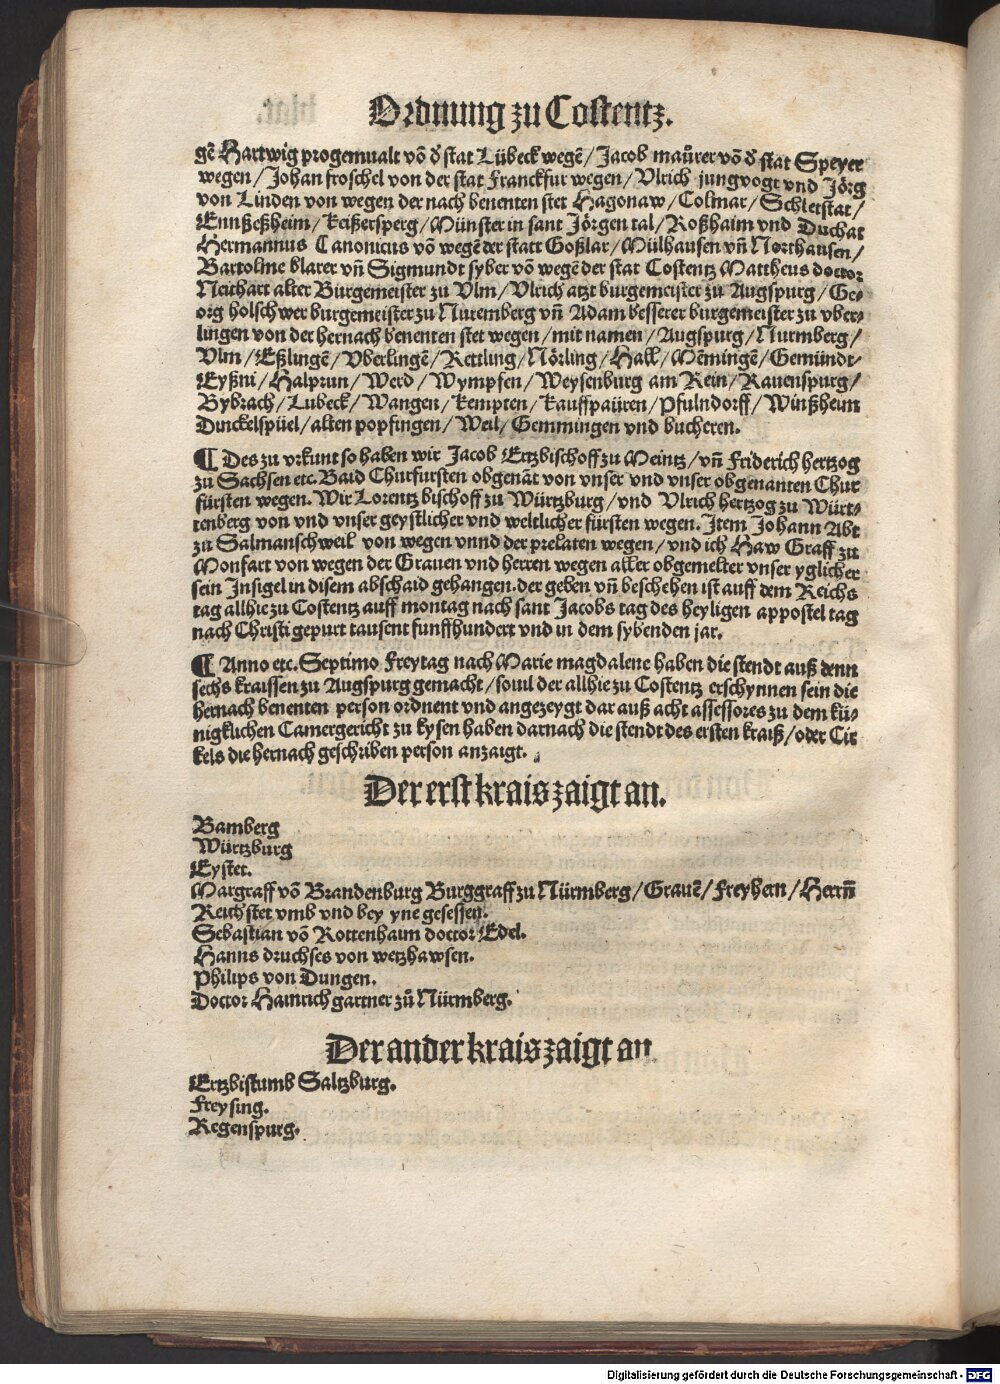 Ordnung zu Costentz.
gē Hartwig progemualt vō d̄ stat Lübeck wegē / Jacob maůrer vō d̄ stat Speyer
wegen / Johan froschel von der stat Franckfur wegen / Vlrich jungvogt vnd Jörg
von Linden von wegen der nach benenten stet Hagonaw / Colmar / Schletstat /
Ennßeßheim / keißersperg / Münster in sant Jörgen tal / Roßhaim vnd Duchat
Hermannus Canonicus vō wegē der statt Goßlar / Mülhausen vn̄ Northausen /
Bartolme blarer vn̄ Sigmundt syber vō wegē der stat Costentz Mattheus doctor
Neithart alter Burgemeister zu Vlm / Vlrich atzt burgemeister zu Augspurg / Ge-
org holschwer burgemeister zu Nuremberg vn̄ Adam besserer burgemeister zu vber-
lingen von der hernach benenten stet wegen / mit namen / Augspurg / Nurmberg /
Vlm / Eßlingē / Vberlingē / Rettling / Nörling / Hall / Mēmingē / Gemündt-
Eyßni / Halprun / Werd / Wympfen / Weysenburg am Rein / Rauenspurg /
Bybrach / Lubeck / Wangen / Kempten / Kauffpaüren / Pfulndorff / Winßheun
Dinckelspüel / alten popfingen / Weil / Gemmingen vnd bucheren.
¶ Des zu vrkunt so haben wir Jacob Ertzbischoff zu Meintz / vn̄ Friderich hertzog
zu Sachsen etc. Baid Churfursten obgenāt von vnser vnd vnser obgenanten Chur
fürsten wegen. Wir Lorentz bischoff zu Würtzburg / vnd Vlrich hertzog zu Würt-
tenberg von vnd vnser geystlicher vnd weltlicher fürsten wegen. Item Johann Abt
zu Salmanschweil von wegen vnnd der prelaten wegen / vnd ich Haw Graff zu
Monfart von wegen der Grauen vnd herren wegen aller obgemelter vnser yglicher
sein Insigel in disem abschaid gehangen. der geben vn̄ beschehen ist auff dem Reichs
tag allhie zu Costentz auff montag nach sant Jacobs tag des heyligen appostel tag
nach Christi gepurt tausent funffhundert vnd in dem sybenden jar.
¶ Anno etc. Septimo Freytag nach Marie magdalene haben die stendt auß denn
sechs kraissen zu Augspurg gemacht / souil der allhie zu Costentz erschynnen sein die
hernach benenten person ordnent vnd angezeygt dar auß acht assessores zu dem kü-
nigklichen Camergericht zu kysen haben darnach die stendt des ersten kraiß / oder Cir
kels die hernach geschriben person anzaigt.
Der erst krais zaigt an.
Bamberg
Würtzburg
Eystet.
Margraff vō Brandenburg Burggraff zu Nürmberg / Grauē / freyhern / Herrn̄
Reichstet vmb vnd bey yne gesessen.
Sebastian vō Rottenhaun doctor Edel.
Hanns druchses von wetzhawsen.
Philips von Dungen.
Doctor Hainrich gartner zů Nürmberg.
Der ander krais zaigt an.
Ertzbistumb Saltzburg.
Freysing.
Regenspurg.
Digitalisierung gefördert durch die Deutsche Forschungsgemeinschaft - DFG